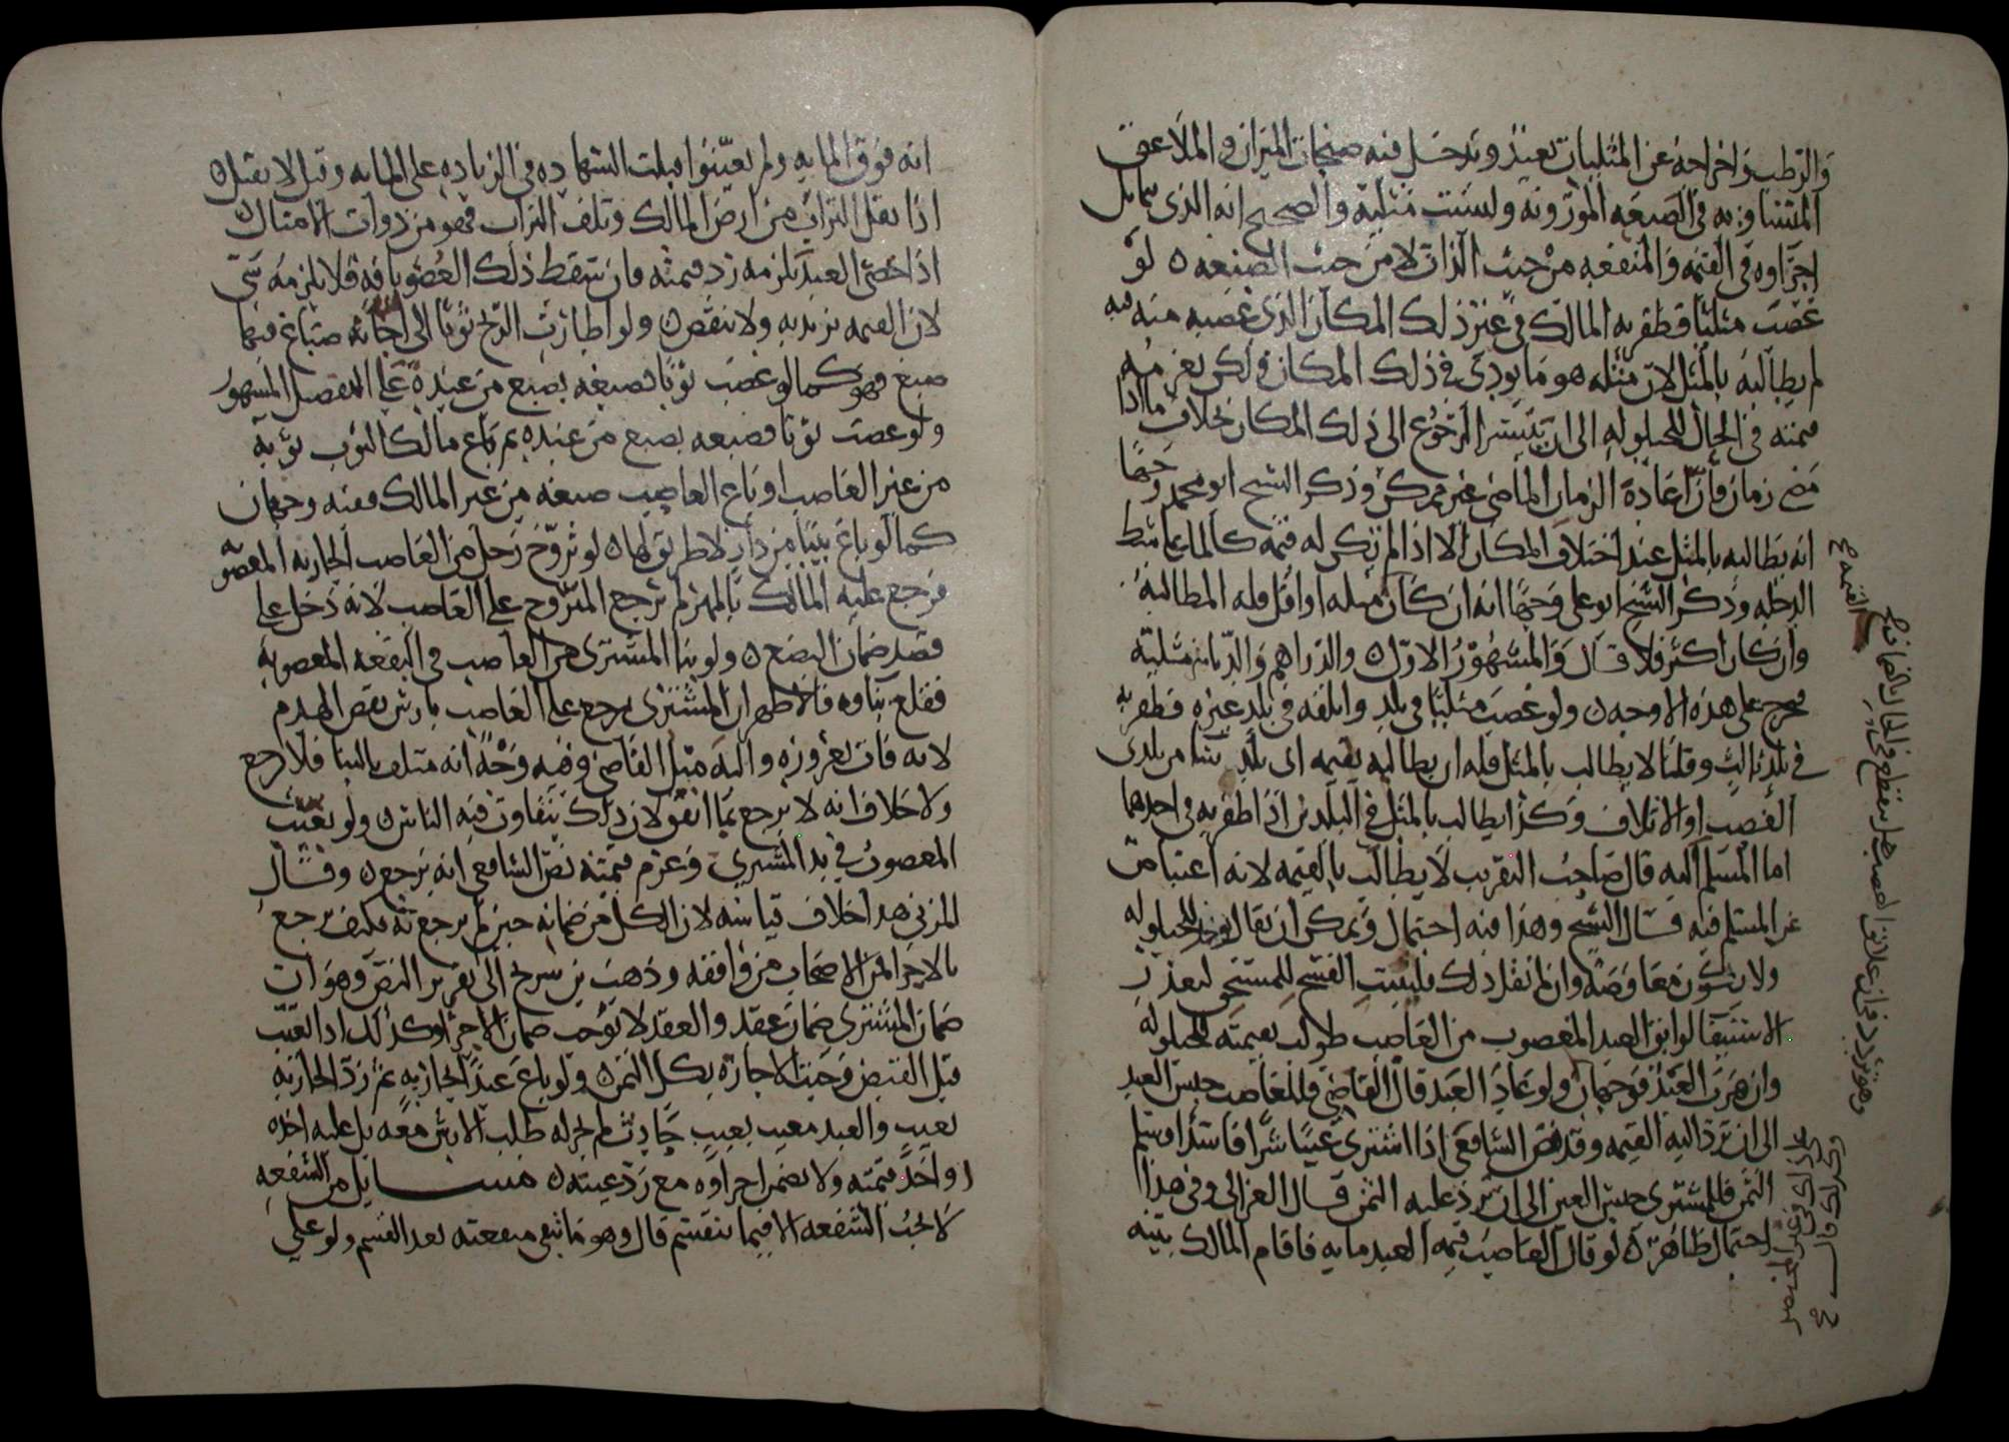 والرطب واخراجه عن المثليات بعيد ويدخل فيه صنجات الميزان والملاعق
المتساويه في الصنعه الموزونه وليست مثلية والصحيح انه الذي تماثل
اجزاوه في القيمه والمنفعه من حيث الذات لا من حيث الصنعه ٥ لو
غصب مثليا فظفر به المالك في غير ذلك المكان الذي غصبه منه فيه
لم يطالبه بالمثل لان مثله هو ما يودى في ذلك المكان ولكن يغرمه
قيمته في الحال للحيلوله الى ان يتيسر الرجوع الى ذلك المكان بخلاف ما اذا
مضى زمان فان اعادة الزمان الماضي غير ممكن وذكر الشيخ ابو محمد وجها
انه يطالبه بالمثل عند اختلاف المكان الا اذا لم تكن له قيمه كالماء على شط
الدجله وذكر الشيخ ابو علي وجها انه ان كان مثله او اقل فله المطالبة
وان كان اكثر فلا قال والمشهور الاول ٥ والدراهم والدنانير مثلية
فخرج على هذه الاوجه ٥ ولو غصب مثليا في بلد واتلفه في بلد غيره فظفر به
في بلد ثالث وقلنا لا يطالب بالمثل فله ان يطالبه بقيمه اى بلد شا من بلدى
الغصب او الاتلاف وكذا يطالب بالمثل في البلدين اذا ظفر به في احدهما
اما المسلم اليه قال صاحب التقريب لا يطالب بالقيمه لانه اعتياض
عن المسلم فيه قال الشيخ وهذا فيه احتمال ويمكن ان يقال يوخذ للحيلوله
ولا يكون معاوضة وان لم نقل ذلك فليثبت الفسخ للمستحق لتعذر
الاستيفا لو ابق العبد المغصوب من الغاصب طولب بقيمته للحيلوله
وان هرب العبد فوجهان ولو عاد العبد قال القاضي فللغاصب حبس العبد
الى ان ترد اليه القيمه وقد نص الشافعى اذا اشترى عينا شرا فاسدا وسلم
الثمن فللمشترى حبس العين الى ان يرد عليه الثمن قال الغزالي وفي هذا
احتمال ظاهر ٥ لو قال الغاصب قيمه العبد مايه فاقام المالك بينه
القيمه
انه فوق المايه ولم يعينوا قبلت الشهاده في الزياده على المايه وقيل لا يقبل ٥
اذا نقل التراب من ارض المالك وتلف التراب فهو من ذوات الامثال
اذا خصى العبد يلزمه رد قيمته فان سقط ذلك العضو بافة فلا يلزمه شى
لان القيمه تزيد به ولا تنقص ٥ ولو اطارت الريح ثوبا الى اجانة صباغ فيها
صبغ فهو كما لو غصب ثوبا فصبغه بصبغ من عنده على التفصيل المشهور
ولو غصب ثوبا فصبغه بصبغ من عنده ثم باع مالك الثوب ثوبه
من غير الغاصب او باع الغاصب صبغه من غير المالك ففيه وجهان
كما لو باع بيتا من دار لا طريق لها ٥ لو تزوج رجل من الغاصب الجاريه المغصوبه
فرجع عليه المالك بالمهر لم يرجع المتزوج على الغاصب لانه دخل على
قصد ضمان البضع ٥ ولو بنا المشترى من الغاصب في البقعه المغصوبه
فقلع بناوه فالاظهر ان المشترى يرجع على الغاصب بارش نقص الهدم
لانه فات بغروره واليه ميل القاضي وفيه وجه انه متلف بالبنا فلا رجع
ولا خلاف انه لا يرجع بما انفق لان ذلك يتفاوت فيه الناس ٥ ولو تعيب
المغصوب في يد المشترى وغرم قيمته نص الشافعي انه يرجع ٥ وقال
المزني هذا خلاف قياسه لان الكل من ضمانه حين لم يرجع به فكيف يرجع
بالاجزا فمن الاصحاب من وافقه وذهب بن سريج الى تقرير النص وهو ان
ضمان المشترى ضمان عقد والعقد لا يوجب ضمان الاجزا وكذلك اذا تعيب
قبل القبض وجبت الاجازة بكل الثمن ٥ ولو باع عبدا بجاريه ثم رد الجاريه
بعيب والعبد معيب بعيب حادث لم يجز له طلب الارش معه بل عليه اخذه
او اخذ قيمته ولا يضمن اجزاوه مع رد عينه ٥ مسايل من الشفعه
لا تجب الشفعه الا فيما ينقسم قال وهو ما تبقى منفعته بعد القسم ولو على